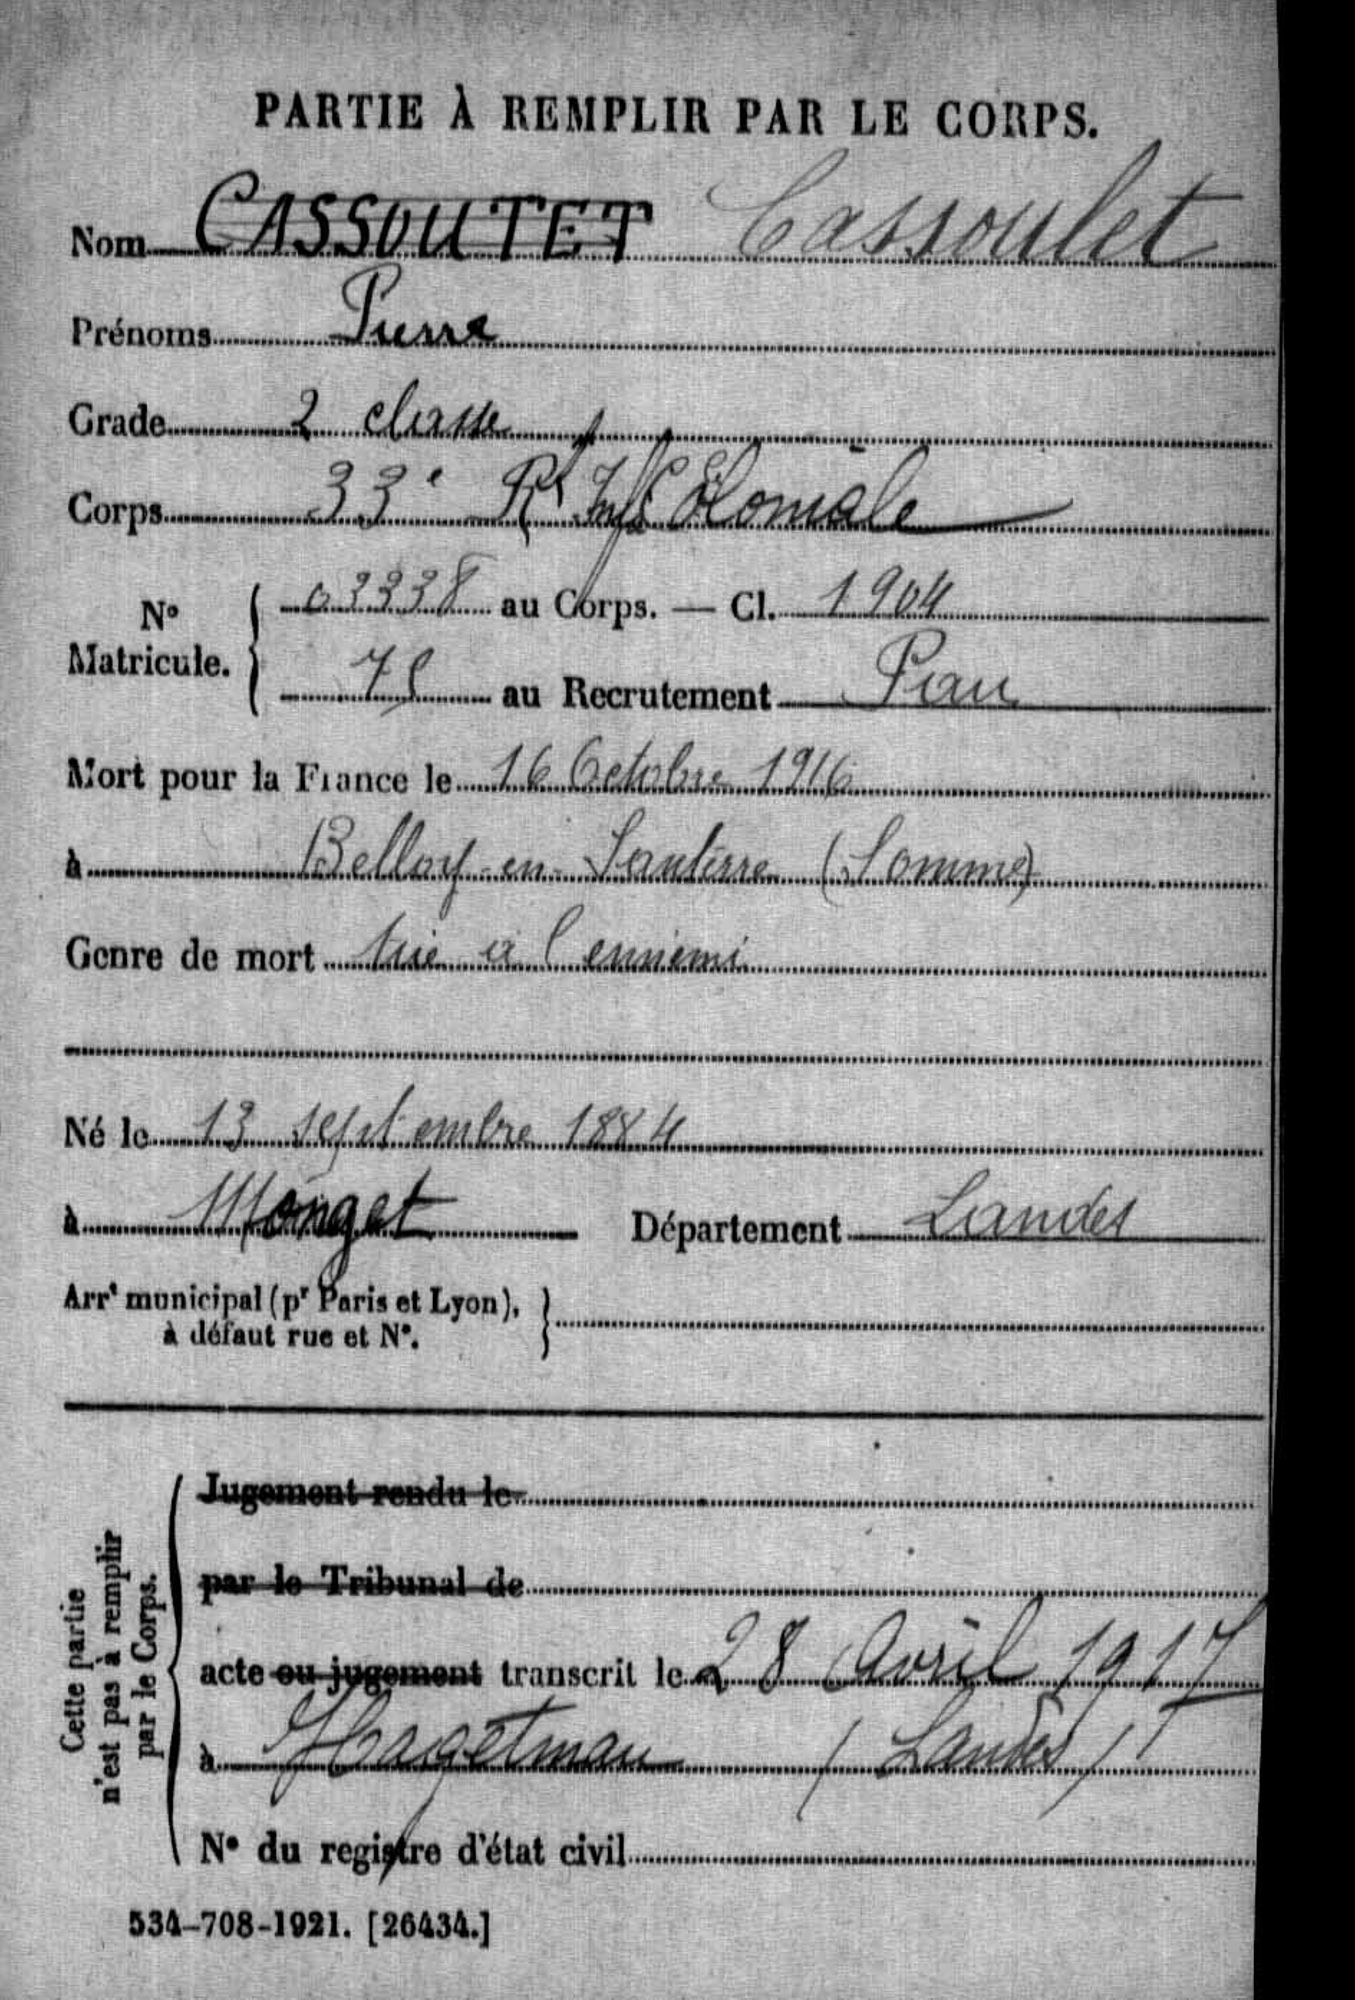 PARTIE À REMPLIR PAR LE CORPS.
Nom CASSOUTET Cassoulet
Prénoms Pierre
Grade 2 classe
Corps 33e Rt Inf Coloniale
No Matricule. { 03338 au Corps. — Cl. 1904
75 au Recrutement Pau
Mort pour la France le 16 Octobre 1916
à Belloy-en-Santerre (Somme)
Genre de mort tué à l'ennemi
Né le 13 septembre 1884
à Monget Département Landes
Arrt municipal (pr Paris et Lyon), à défaut rue et No. }
Cette partie n'est pas à remplir par le Corps.
Jugement rendu le
par le Tribunal de
acte ou jugement transcrit le 28 Avril 1917
à Hagetmau (Landes)
No du registre d'état civil
534-708-1921. [26434.]